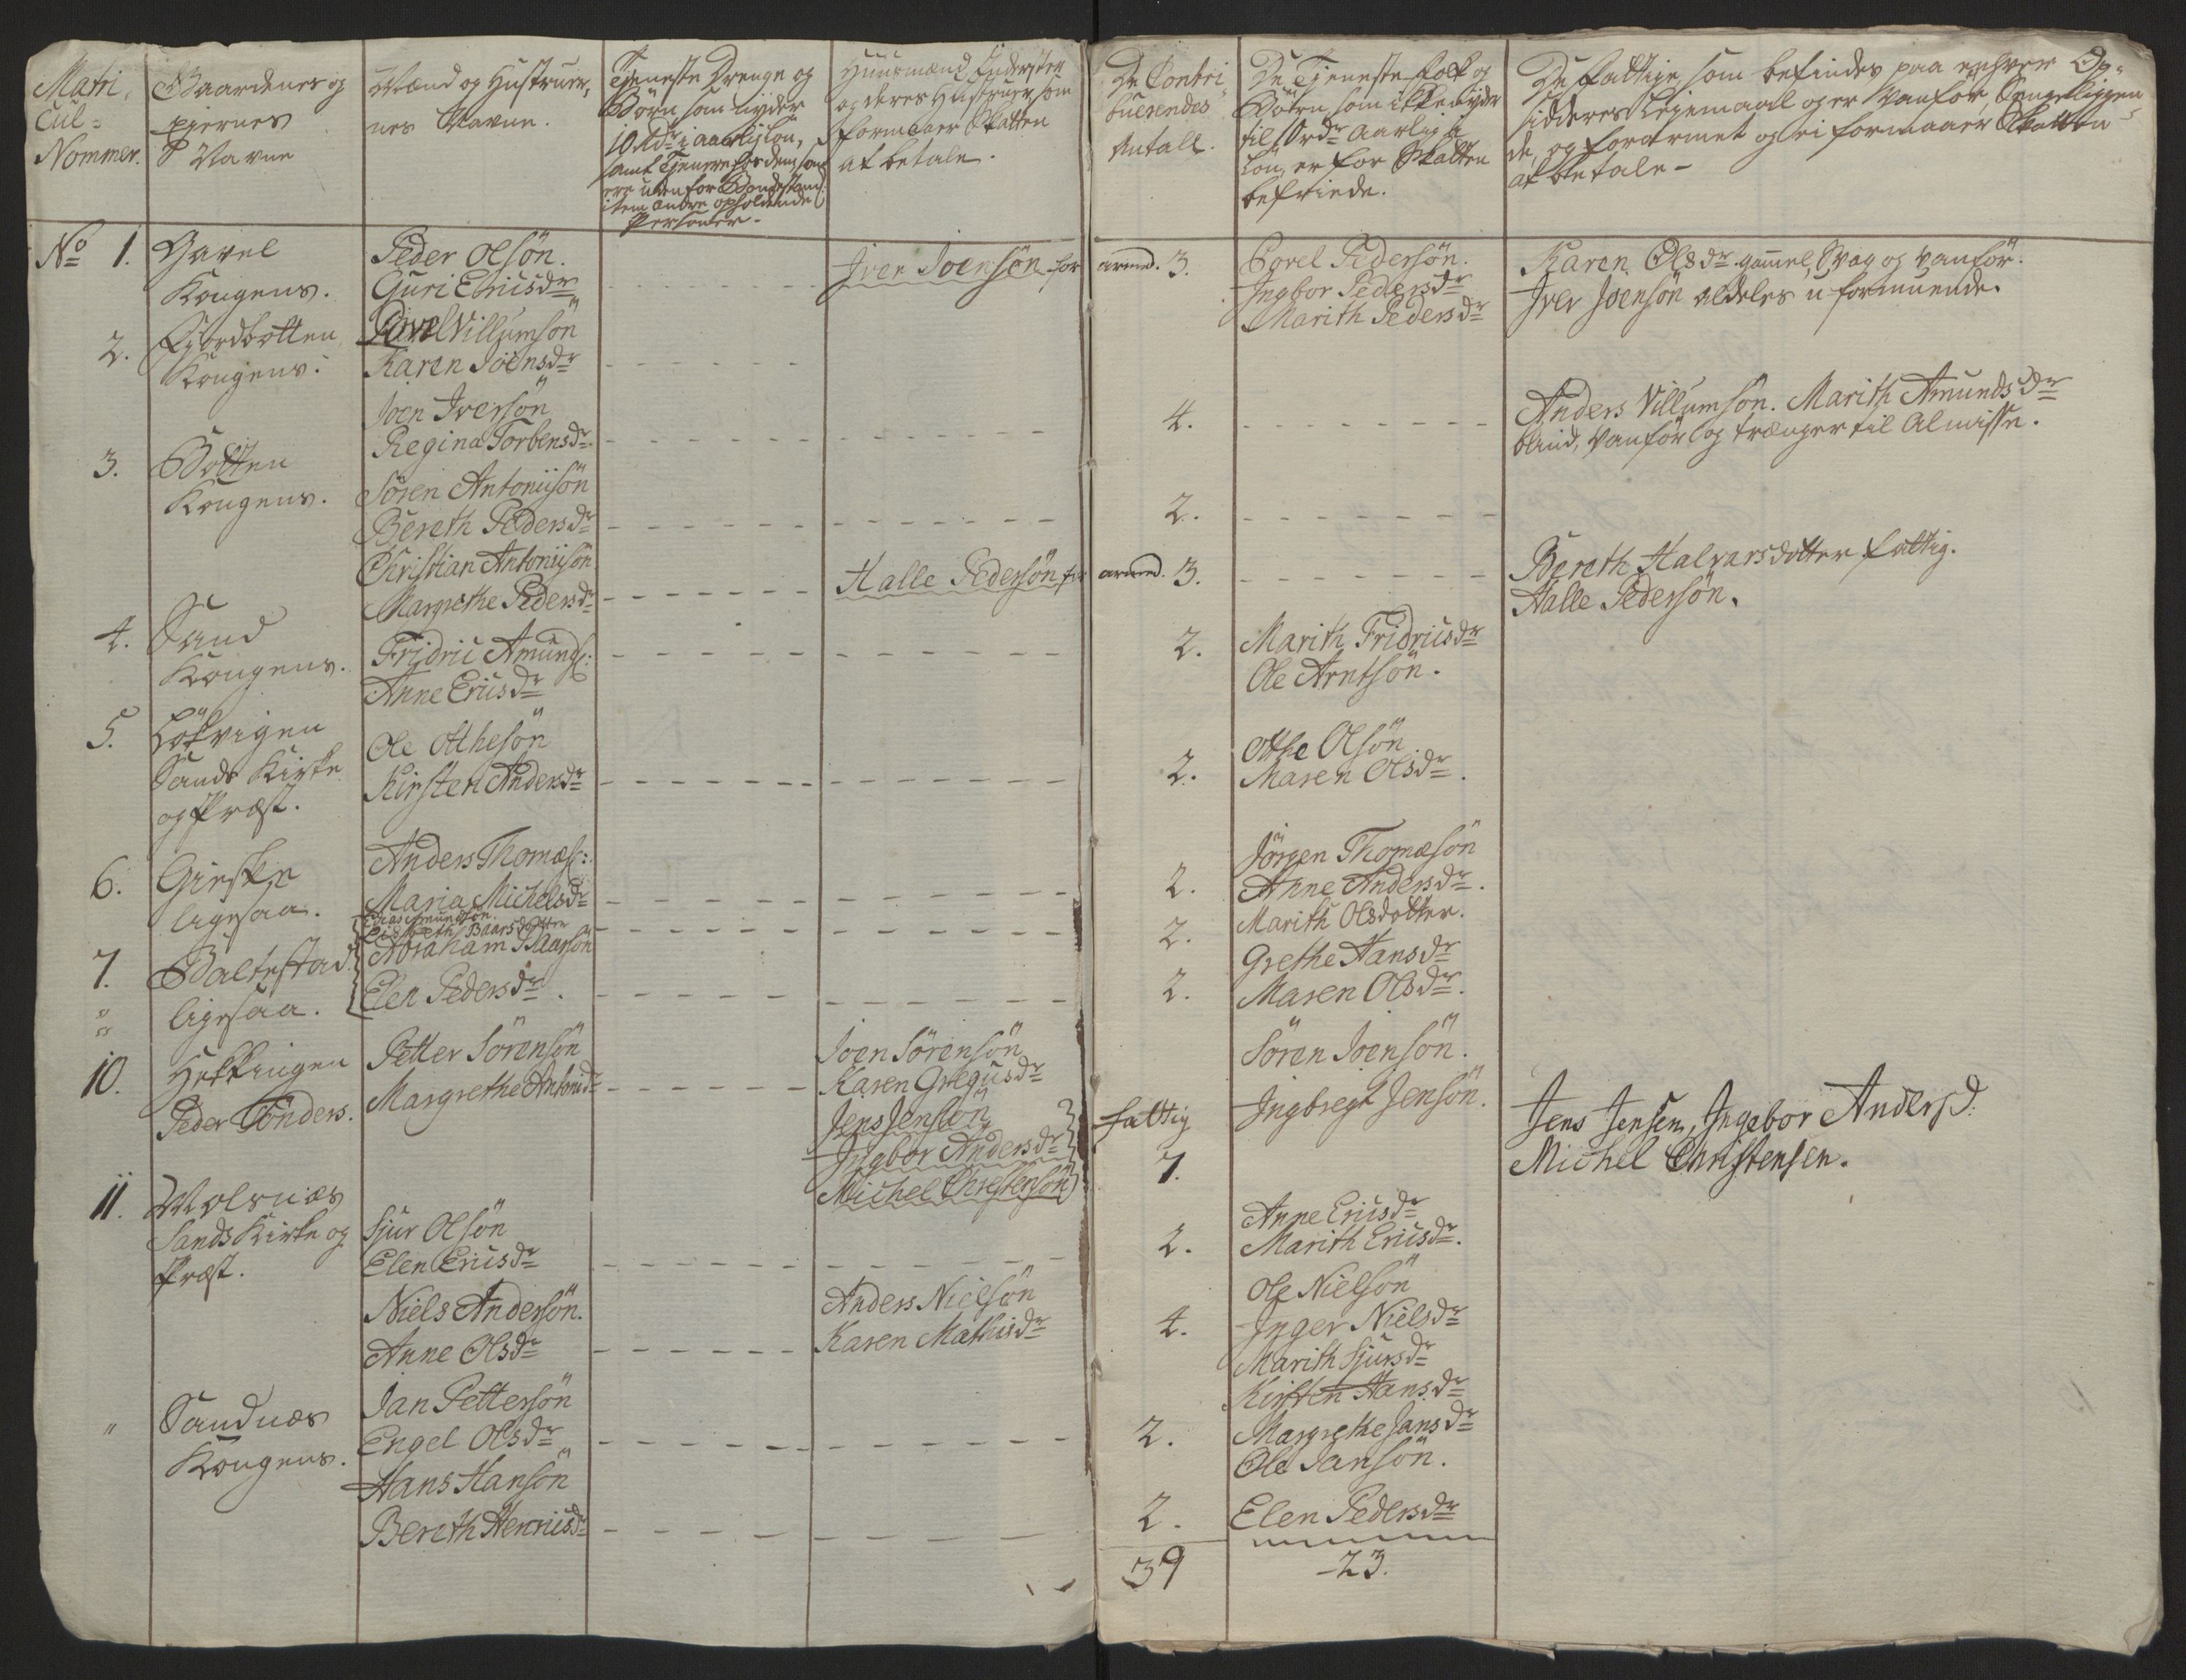 Matri-
cul-
Nommer.
Gaardenes og
Ejernes
Navne
Mænd og Hustruer-
nes Navne.
Tieneste Drenge og
Börn som nyder
10 Rdr i aarlig Lön,
samt Tienere hos dem som
ere uden for Bondestand
item andre opholdende
Personer.
Huusmænd Inderster
og deres Hustruer som
formaaer Skatten
at betale.
De Contri-
buerendes
Antall.
De Tieneste folk og
Börn, som ikke nyder
til Rdr Aarlig
Lön, er for Skatten
befriede.
De fattige som befindes paa enhver Op-
sidderes Leiemaal og er Vanför, Sengeliggen-
de, og forarmet og ei formaaer Skatten
at betale-
No 1. Gavel
Kongens.
Peder Olsön.
Guri Ericsdr
Iver Joensön for
armed. 3.
Povel Pedersön.
Ingbor Pedersdr
Marith Pedersdr
Karen Olsdr gammel, Svag og vanför.
Iver Joensön aldeles uformuende.
2. Fjordbotten
Kongens.
Povel Villumsön
Karen Joensdr
Joen Iversön
Regina Torbensdr
4.
Anders Villumsön. Marith Amundsdr
blind, vanför og trænger til Almisse.
3. Botten
Kongens.
Sören Antoniisön
Bereth Pedersdr
2.
Christian Antoniisön
Margrethe Pedersdr
Halle Pedersön for
armed. 3.
Bereth Halvarsdotter fattig.
Halle Pedersön.
4. Sand
Kongens.
Fridric Amunds:
Anne Ericsdr
2.
Marith Fridricsdr
Ole Arntsön.
5. Lökvigen
Sands Kirke
og Præst.
Ole Othesön
Kirsten Andersdr
2.
Othe Olsön
Maren Olsdr.
6. Gieske
ligesaa.
Anders Thomæs:
Maria Michelsdr
2.
Jörgen Thomæsön
Anne Andersdr.
Lisbeth Baarsdotter
2.
Marith Olsdotter.
7. Baltestad
ligesaa.
Abraham Baarsön
Elen Pedersdr.
2.
Grethe Hansdr
Maren Olsdr.
10. Hekkingen
Peder Tönders.
Petter Sörensön
Margrethe Antonidr
Joen Sörensön
Karen Gregusdr
Jens Jensön
Ingbor Andersdr
Michel Christensön
fattig
7.
Sören Joensön.
Ingbregt Jensön.
Jens Jensen, Ingebor Andersd.
Michel Christensen.
11. Wolsnæs
Sands Kirke og
Præst.
Sjur Olsön
Elen Ericsdr
2.
Anne Ericsdr
Marith Ericsdr.
Niels Andersön.
Anne Olsdr
Anders Nielsön
Karen Mathisdr
4.
Ole Nielsön
Inger Nielsdr
Marith Sjursdr
Kirsten Hansdr
" Sandnæs
Kongens.
Jan Pettersön
Engel Olsdr
2.
Margrethe Jansdr
Ole Jansön.
Hans Hansön
Bereth Henricsdr
2.
Elen Pedersdr
39
23.